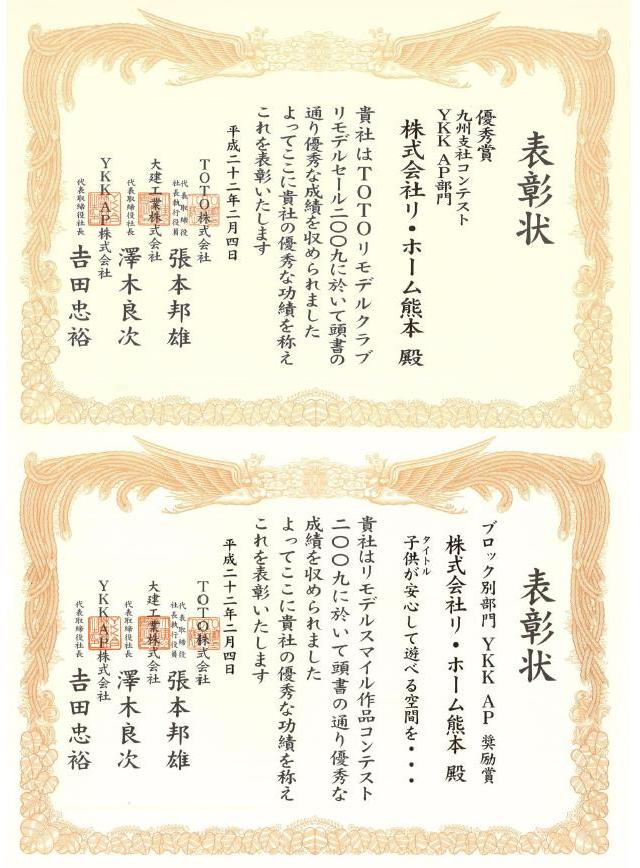 表彰状
優秀賞
九州支社コンテスト
YKK AP部門
株式会社リ・ホーム熊本 殿
貴社はTOTOリモデルクラブ
リモデルセール二〇〇九に於いて頭書の
通り優秀な成績を収められました
よってここに貴社の優秀な功績を称え
これを表彰いたします
平成二十二年二月四日
TOTO株式会社
代表取締役
社長執行役員
張本邦雄
大建工業株式会社
代表取締役社長
澤木良次
YKK AP株式会社
代表取締役社長
吉田忠裕
表彰状
ブロック別部門 YKK AP 奨励賞
株式会社リ・ホーム熊本 殿
タイトル
子供が安心して遊べる空間を・・・
貴社はリモデルスマイル作品コンテスト
二〇〇九に於いて頭書の通り優秀な
成績を収められました
よってここに貴社の優秀な功績を称え
これを表彰いたします
平成二十二年二月四日
TOTO株式会社
代表取締役
社長執行役員
張本邦雄
大建工業株式会社
代表取締役社長
澤木良次
YKK AP株式会社
代表取締役社長
吉田忠裕